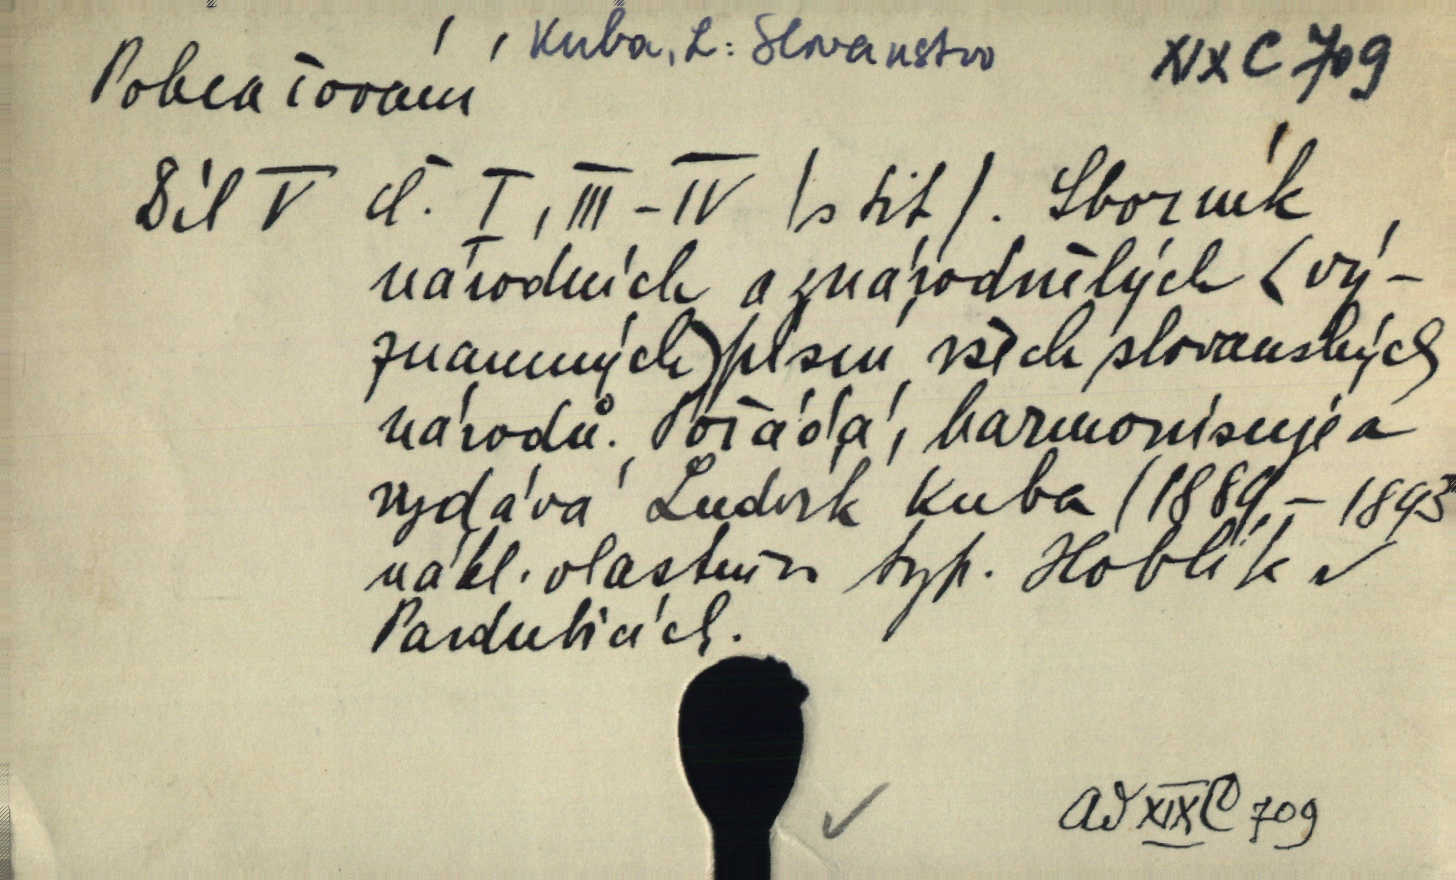 Kuba, L: Slovanstvo
XIX C 709
Pokračování
Díl V č. I, III-IV (s tit). Sborník
národních a znárodnělých (vý-
znamných) písní všech slovanských
národů. Pořádá, harmonisuje a
vydává Ludvík Kuba (1889-1893
nákl. vlastním typ. Hoblík v
Pardubicích.
Ad XIX C 709